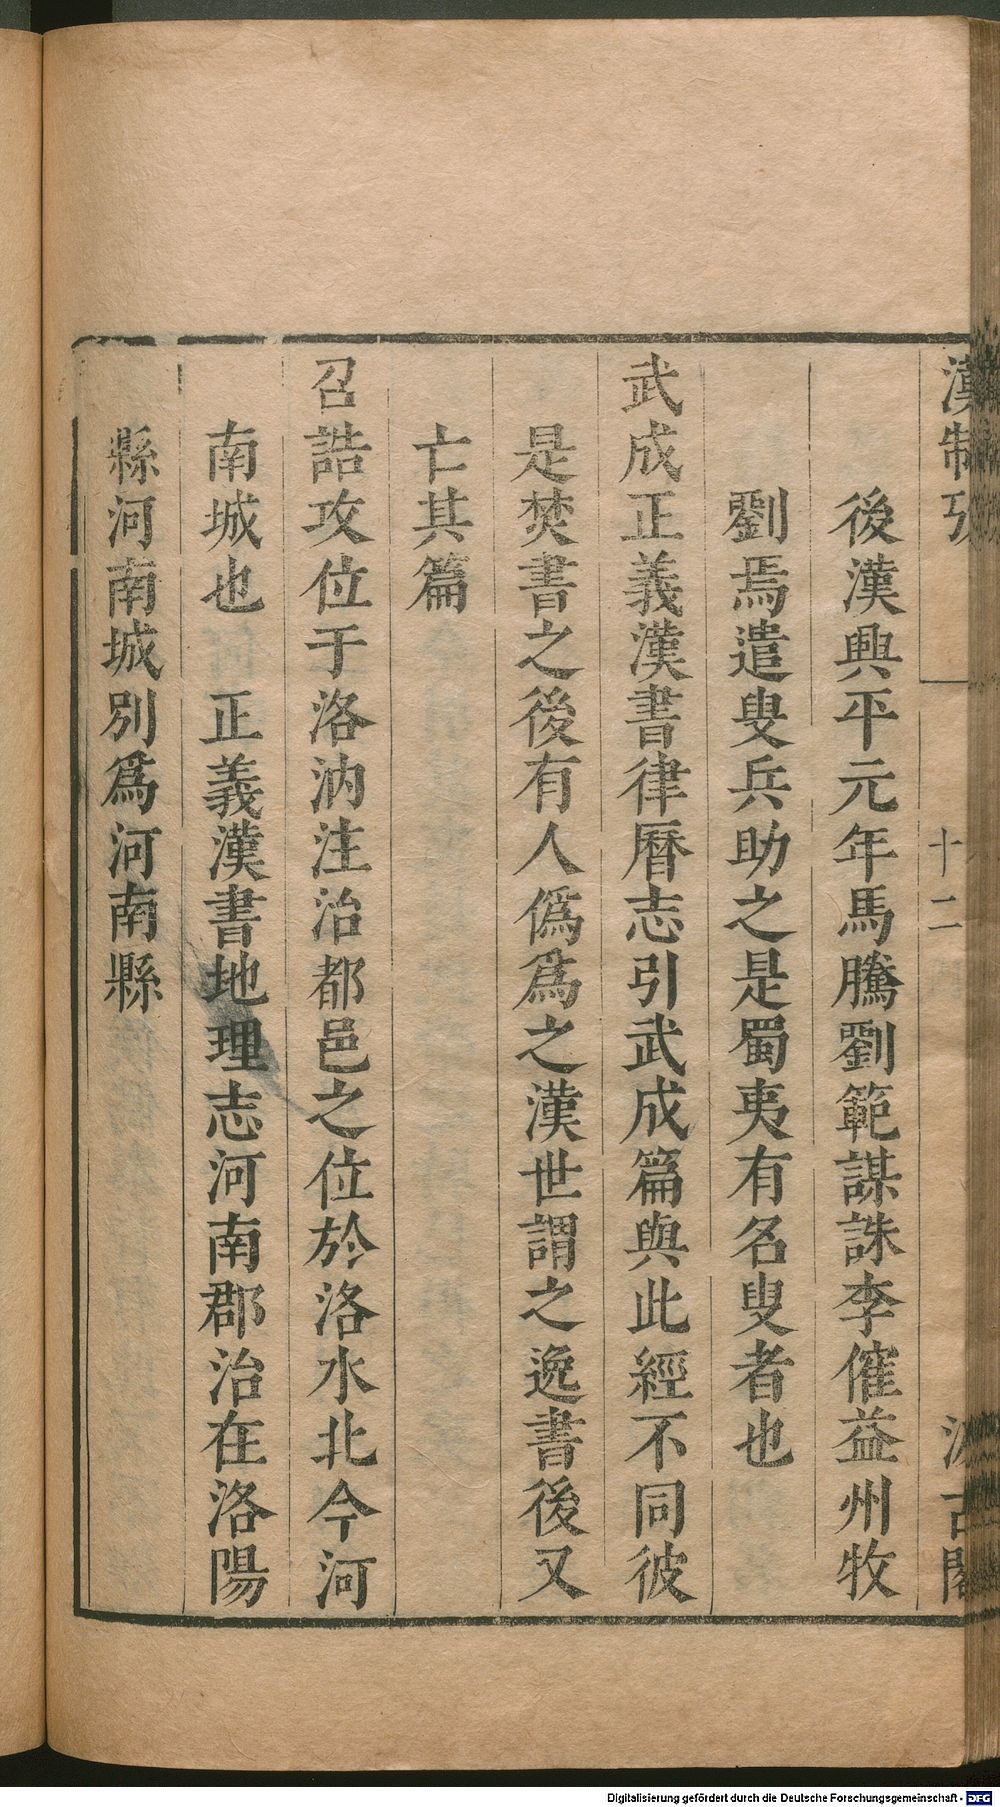 漢制攷
十二
汲古閣
後漢興平元年馬騰劉範謀誅李傕益州牧
劉焉遣叟兵助之是蜀夷有名叟者也
武成正義漢書律曆志引武成篇與此經不同彼
是焚書之後有人僞爲之漢世謂之逸書後又
亡其篇
召誥攻位于洛汭注治都邑之位於洛水北今河
南城也 正義漢書地理志河南郡治在洛陽
縣河南城別爲河南縣
Digitalisierung gefördert durch die Deutsche Forschungsgemeinschaft - DFG